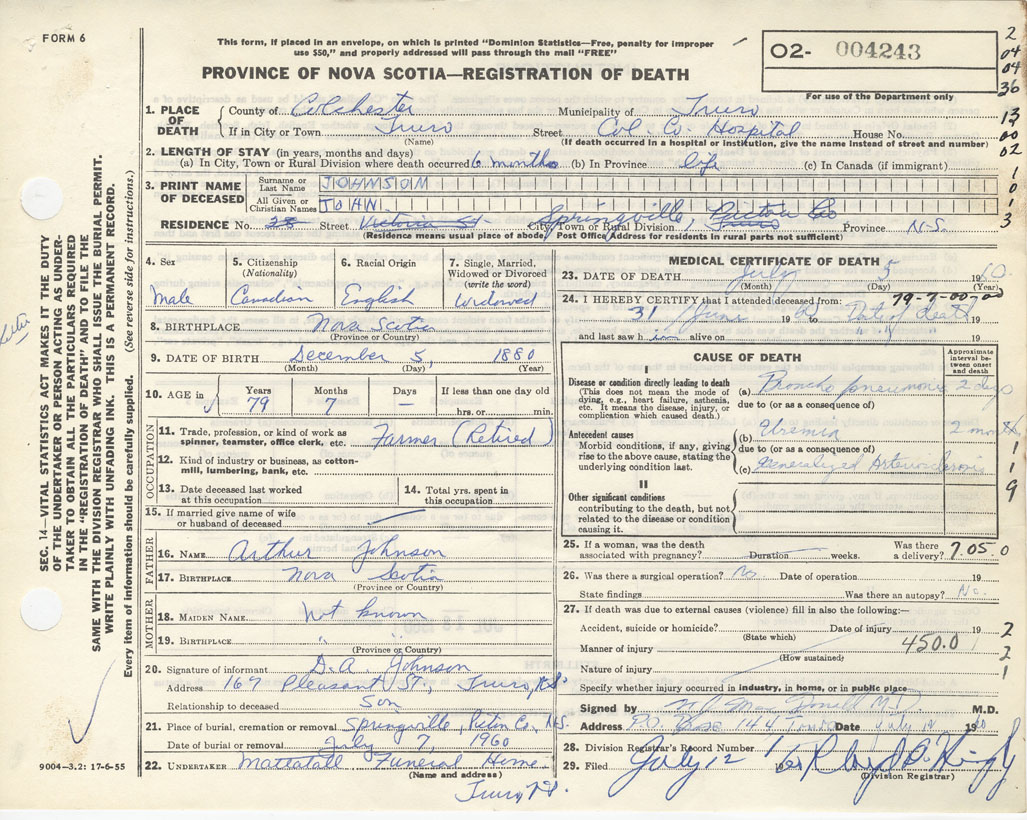 FORM 6
This form, if placed in an envelope, on which is printed "Dominion Statistics—Free, penalty for improper
use $50," and properly addressed will pass through the mail "FREE"
PROVINCE OF NOVA SCOTIA—REGISTRATION OF DEATH
O2- 004243
For use of the Department only
2
04
04
36
13
00
02
1
0
1
3
1. PLACE OF DEATH County of Colchester Municipality of Truro
If in City or Town Truro Street Col. Co. Hospital House No.
(Name) (If death occurred in a hospital or institution, give the name instead of street and number)
2. LENGTH OF STAY (in years, months and days)
(a) In City, Town or Rural Division where death occurred 6 months (b) In Province life (c) In Canada (if immigrant)
3. PRINT NAME OF DECEASED Surname or Last Name JOHNSON
All Given or Christian Names JOHN
RESIDENCE No. 38 Street Victoria St City, Town or Rural Division Springville, Pictou Co Truro Province N.S.
(Residence means usual place of abode. Post Office Address for residents in rural parts not sufficient)
4. Sex
Male
5. Citizenship
(Nationality)
Canadian
6. Racial Origin
English
7. Single, Married,
Widowed or Divorced
(write the word)
Widowed
8. BIRTHPLACE Nova Scotia
(Province or Country)
9. DATE OF BIRTH December 5, 1880
(Month) (Day) (Year)
10. AGE in Years 79 Months 7 Days — If less than one day old
hrs. or min.
OCCUPATION
11. Trade, profession, or kind of work as
spinner, teamster, office clerk, etc. Farmer (Retired)
12. Kind of industry or business, as cotton-
mill, lumbering, bank, etc.
13. Date deceased last worked
at this occupation
14. Total yrs. spent in
this occupation
15. If married give name of wife
or husband of deceased
FATHER
16. NAME Arthur Johnson
17. BIRTHPLACE Nova Scotia
(Province or Country)
MOTHER
18. MAIDEN NAME Not known
19. BIRTHPLACE "
(Province or Country)
20. Signature of informant D. A. Johnson
Address 167 Pleasant St., Truro, N.S.
Relationship to deceased Son
21. Place of burial, cremation or removal Springville, Pictou Co., N.S.
Date of burial or removal July 7, 1960
22. UNDERTAKER Mattatall Funeral Home
(Name and address)
Truro, N.S.
MEDICAL CERTIFICATE OF DEATH
23. DATE OF DEATH July 5 1960
(Month) (Day) (Year)
24. I HEREBY CERTIFY that I attended deceased from: 79-7-00-00
31 June 19 to Date of death 19
and last saw h im alive on 19
CAUSE OF DEATH
Approximate
interval be-
tween onset
and death
I
Disease or condition directly leading to death
(This does not mean the mode of
dying, e.g., heart failure, asthenia,
etc. It means the disease, injury, or
complication which caused death.)
(a) Broncho pneumonia 2 days
due to (or as a consequence of)
Antecedent causes
Morbid conditions, if any, giving
rise to the above cause, stating the
underlying condition last.
(b) Uremia 2 months
due to (or as a consequence of)
(c) Generalized Arteriosclerosis
II
Other significant conditions
contributing to the death, but not
related to the disease or condition
causing it.
1
1
1
9
25. If a woman, was the death
associated with pregnancy? Duration weeks. Was there
a delivery? 7.05 0
26. Was there a surgical operation? No Date of operation 19
State findings Was there an autopsy? No.
27. If death was due to external causes (violence) fill in also the following:—
Accident, suicide or homicide? Date of injury 19
(State which)
Manner of injury 450.0
(How sustained)
Nature of injury
Specify whether injury occurred in industry, in home, or in public place
2
2
1
Signed by MacDonell M.D. M.D.
Address P.O. Box 144 Truro Date July 12 1960
28. Division Registrar's Record Number
29. Filed July 12 1960
(Division Registrar)
SEC. 14—VITAL STATISTICS ACT MAKES IT THE DUTY
OF THE UNDERTAKER OR PERSON ACTING AS UNDER-
TAKER TO OBTAIN ALL THE PARTICULARS REQUIRED
IN THE "REGISTRATION OF DEATH" AND TO FILE THE
SAME WITH THE DIVISION REGISTRAR WHO SHALL ISSUE THE BURIAL PERMIT.
WRITE PLAINLY WITH UNFADING INK. THIS IS A PERMANENT RECORD.
Every item of information should be carefully supplied. (See reverse side for instructions.)
9004—3.2: 17-6-55